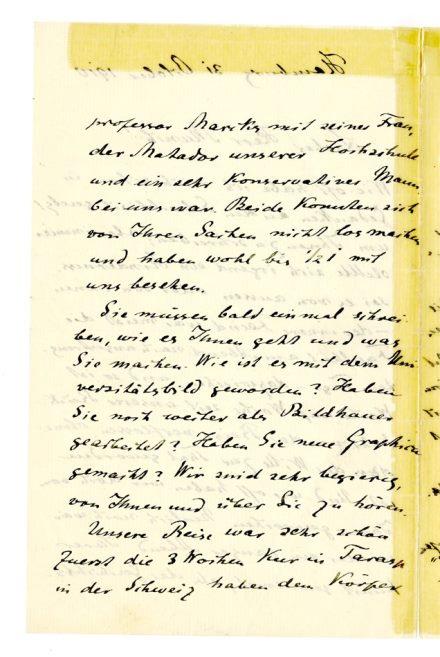 professor Marcks mit seiner Frau,
der Matador unserer Hochschule
und ein sehr Konservativer Mann
bei uns war. Beide Konnten sich
von Ihren Sachen nicht los machen
und haben wohl bis ½1 mit
uns besehen.
Sie müssen bald einmal schrei
ben, wie es Ihnen geht und was
Sie machen. Wie ist es mit dem Uni
versitätsbild geworden? Haben
Sie noch weiter als Bildhauer
gearbeitet? Haben Sie neue Graphica
gemacht? Wir sind sehr begierig,
von Ihnen und über Sie zu hören.
Unsere Reise war sehr schön
Zuerst die 3 Wochen Kur in Tarasp
in der Schweiz haben den Körper